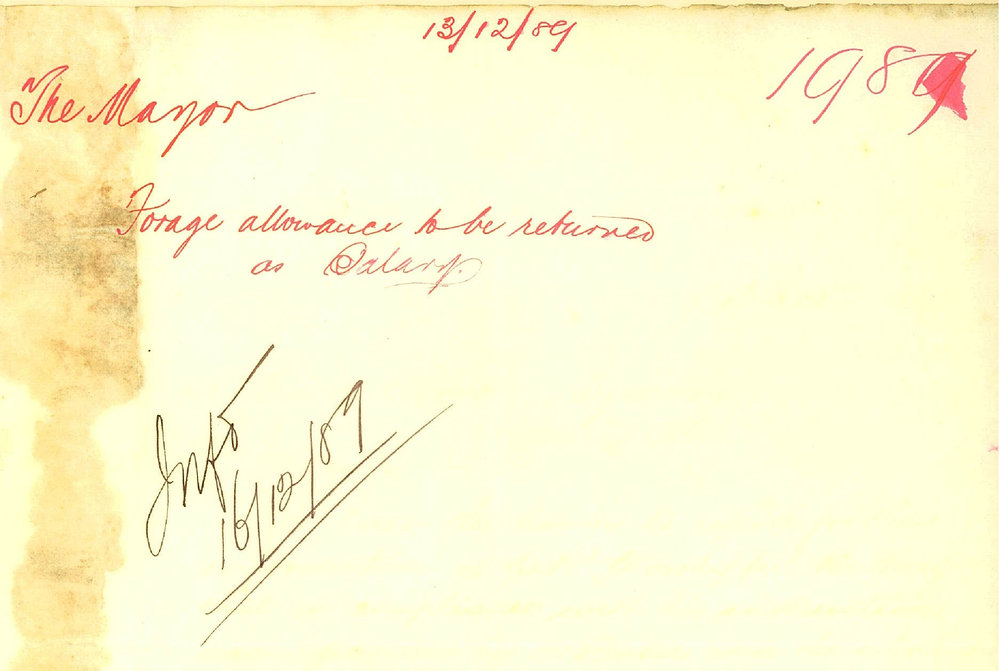 13/12/89
1989
The Mayor
Forage allowance to be returned
as Salary.
16/12/89